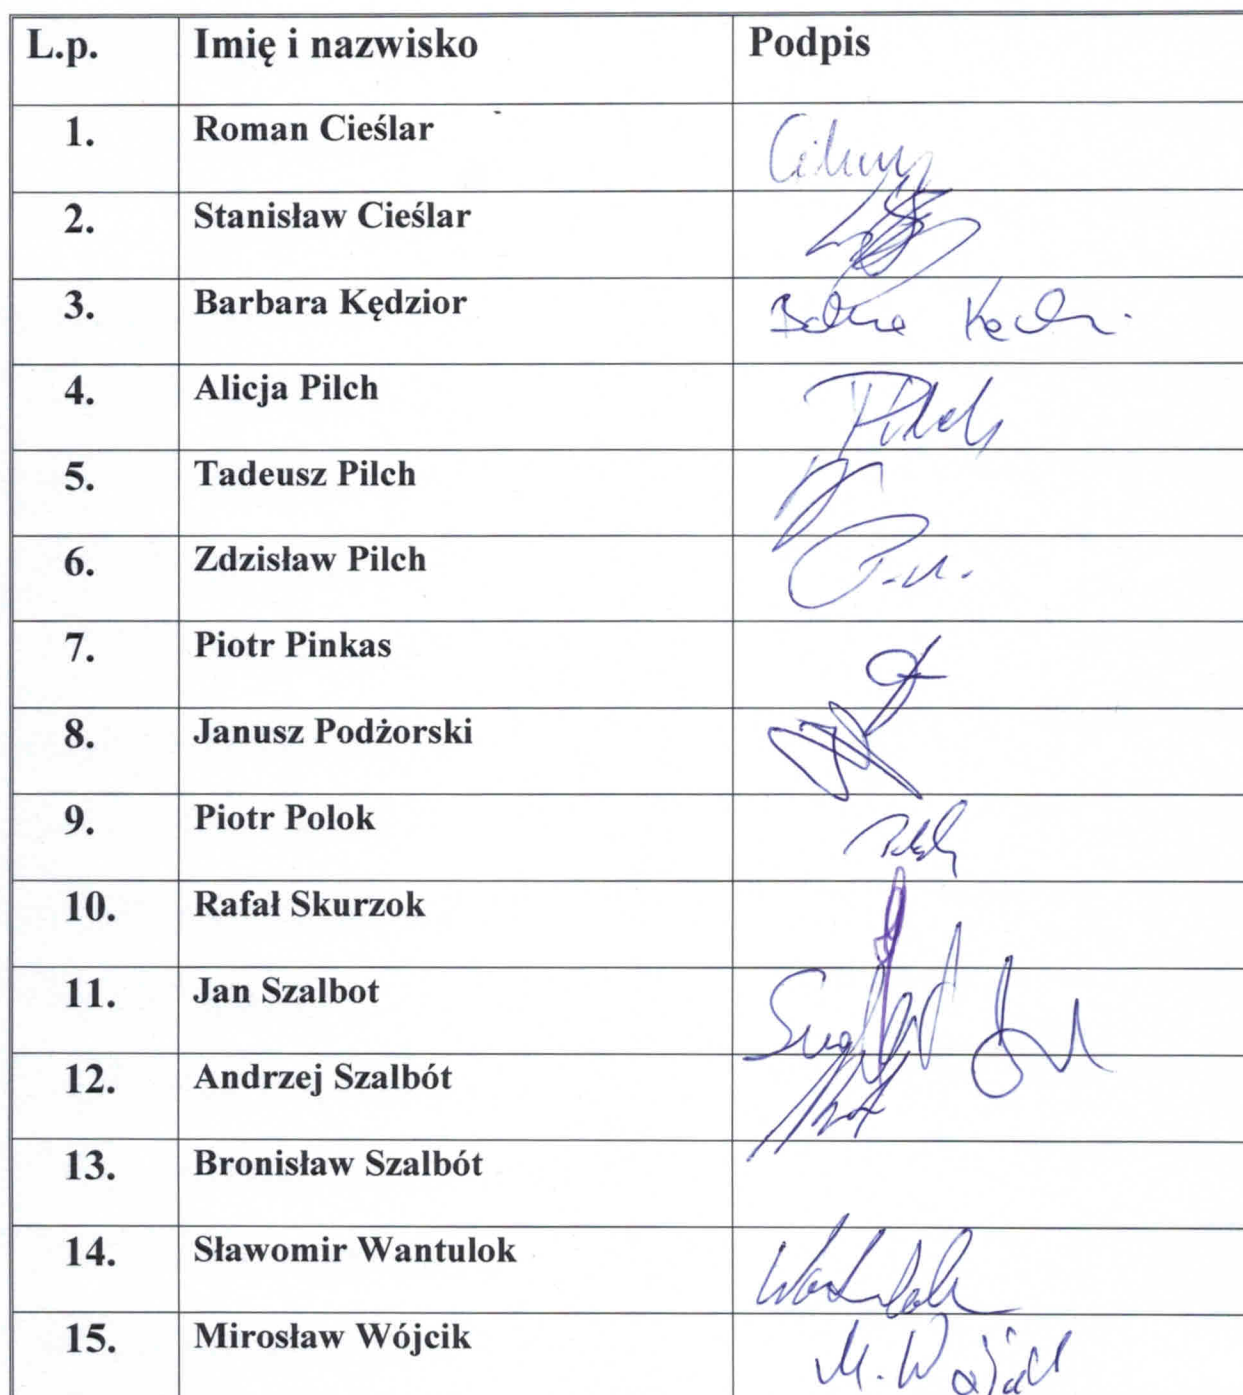 L.p. Imię i nazwisko Podpis
1. Roman Cieślar
2. Stanisław Cieślar
3. Barbara Kędzior
4. Alicja Pilch Pilch
5. Tadeusz Pilch
6. Zdzisław Pilch
7. Piotr Pinkas
8. Janusz Podżorski
9. Piotr Polok
10. Rafał Skurzok
11. Jan Szalbot
12. Andrzej Szalbót
13. Bronisław Szalbót
14. Sławomir Wantulok
15. Mirosław Wójcik M. Wójcik